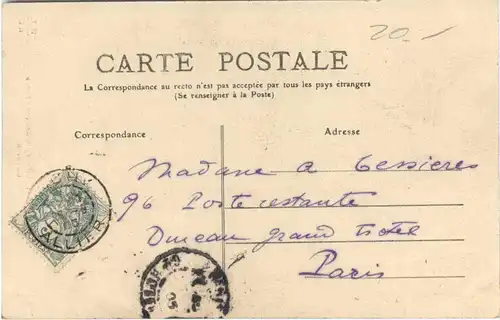 20.-
CARTE POSTALE
La Correspondance au recto n'est pas acceptée par tous les pays étrangers
(Se renseigner à la Poste)
Correspondance
Adresse
Madame a Cessieres
96 Poste restante
Bureau grand Hotel
Paris
ALLIER